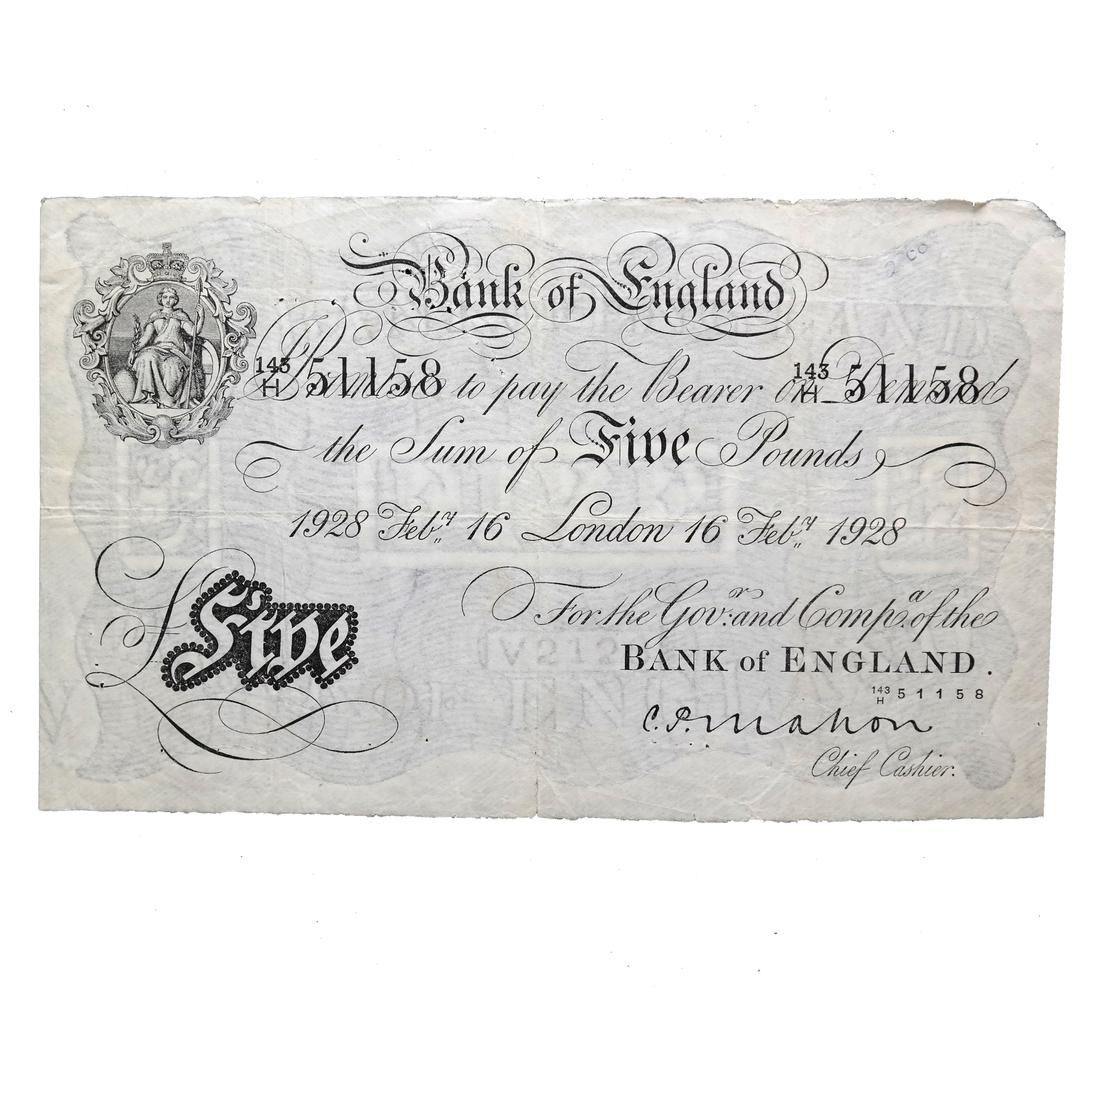 2-60
Bank of England
143/H 51158 143/H 51158
I Promise to pay the Bearer on Demand
the Sum of Five Pounds
1928 Feb.ry 16 London 16 Feb.ry 1928
For the Gov.r and Comp.a of the
BANK of ENGLAND.
£Five
143/H 51158
C.P. Mahon
Chief Cashier.